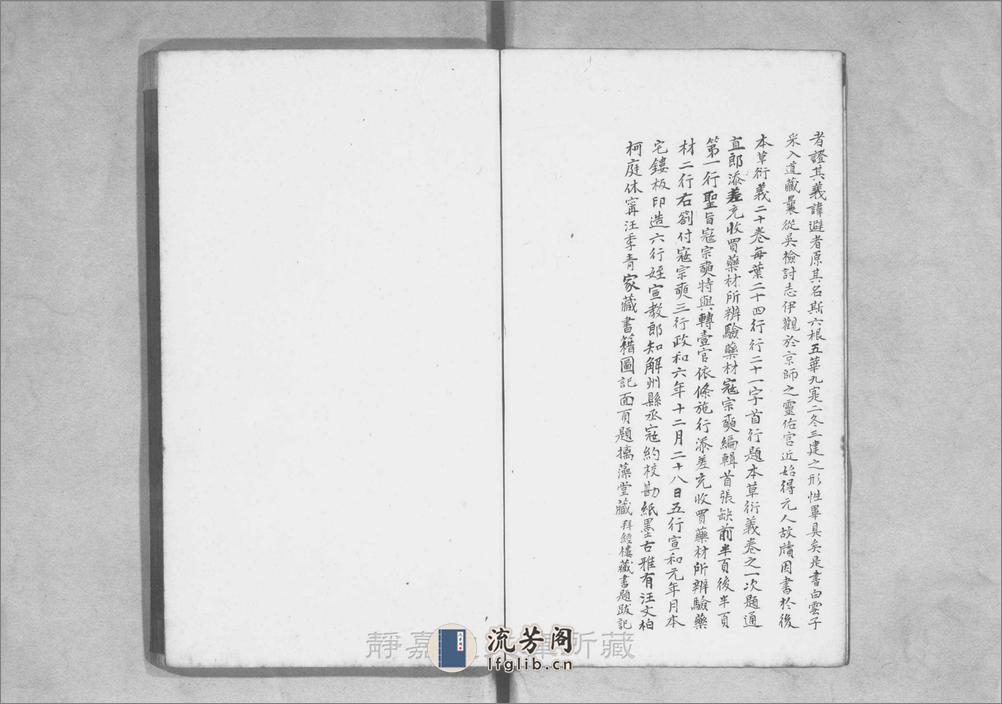 者證其義諱避者原其名斯六根五華九實二冬三建之形性畢具矣是書白雲子
采入道藏曩從吳檢討志伊觀於京師之靈佑宮近始得元人故牘因書於後
本草衍義二十卷每葉二十四行行二十一字首行題本草衍義卷之一次題通
直郎添差充收買藥材所辨驗藥材寇宗奭編輯首張缺前半頁後半頁
第一行聖旨寇宗奭特與轉壹官依條施行添差充收買藥材所辨驗藥
材二行右劄付寇宗奭三行政和六年十二月二十八日五行宣和元年月本
宅鏤板印造六行姪宣教郎知解州縣丞寇約校勘紙墨古雅有汪文柏
柯庭休寧汪季青家藏書籍圖記面頁題摛藻堂藏拜經樓藏書題跋記
靜嘉 所藏
流芳阁
lfglib.cn